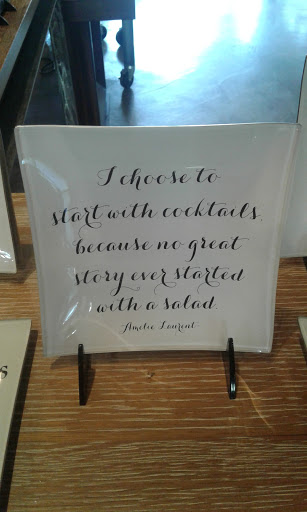 I choose to
start with cocktails,
because no great
story ever started
with a salad.
Amelie Laurent
s